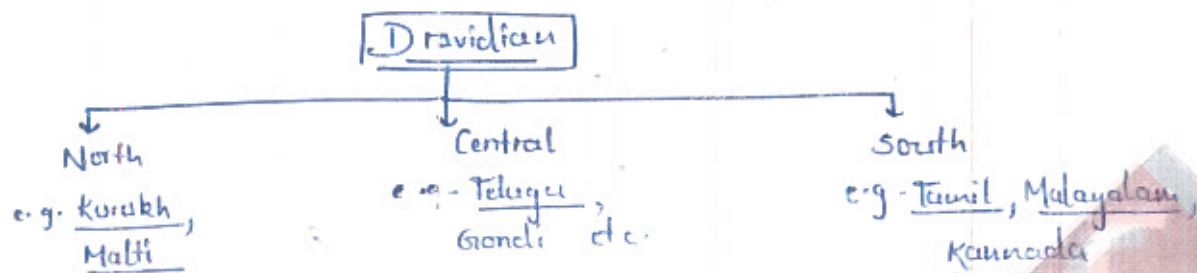 Dravidian
North
e.g. Kurukh,
Malti
Central
e.g- Telugu,
Gondi etc.
South
e.g- Tamil, Malayalam,
Kannada